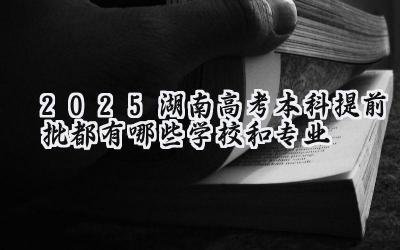 2025湖南高考本科提前
批都有哪些学校和专业